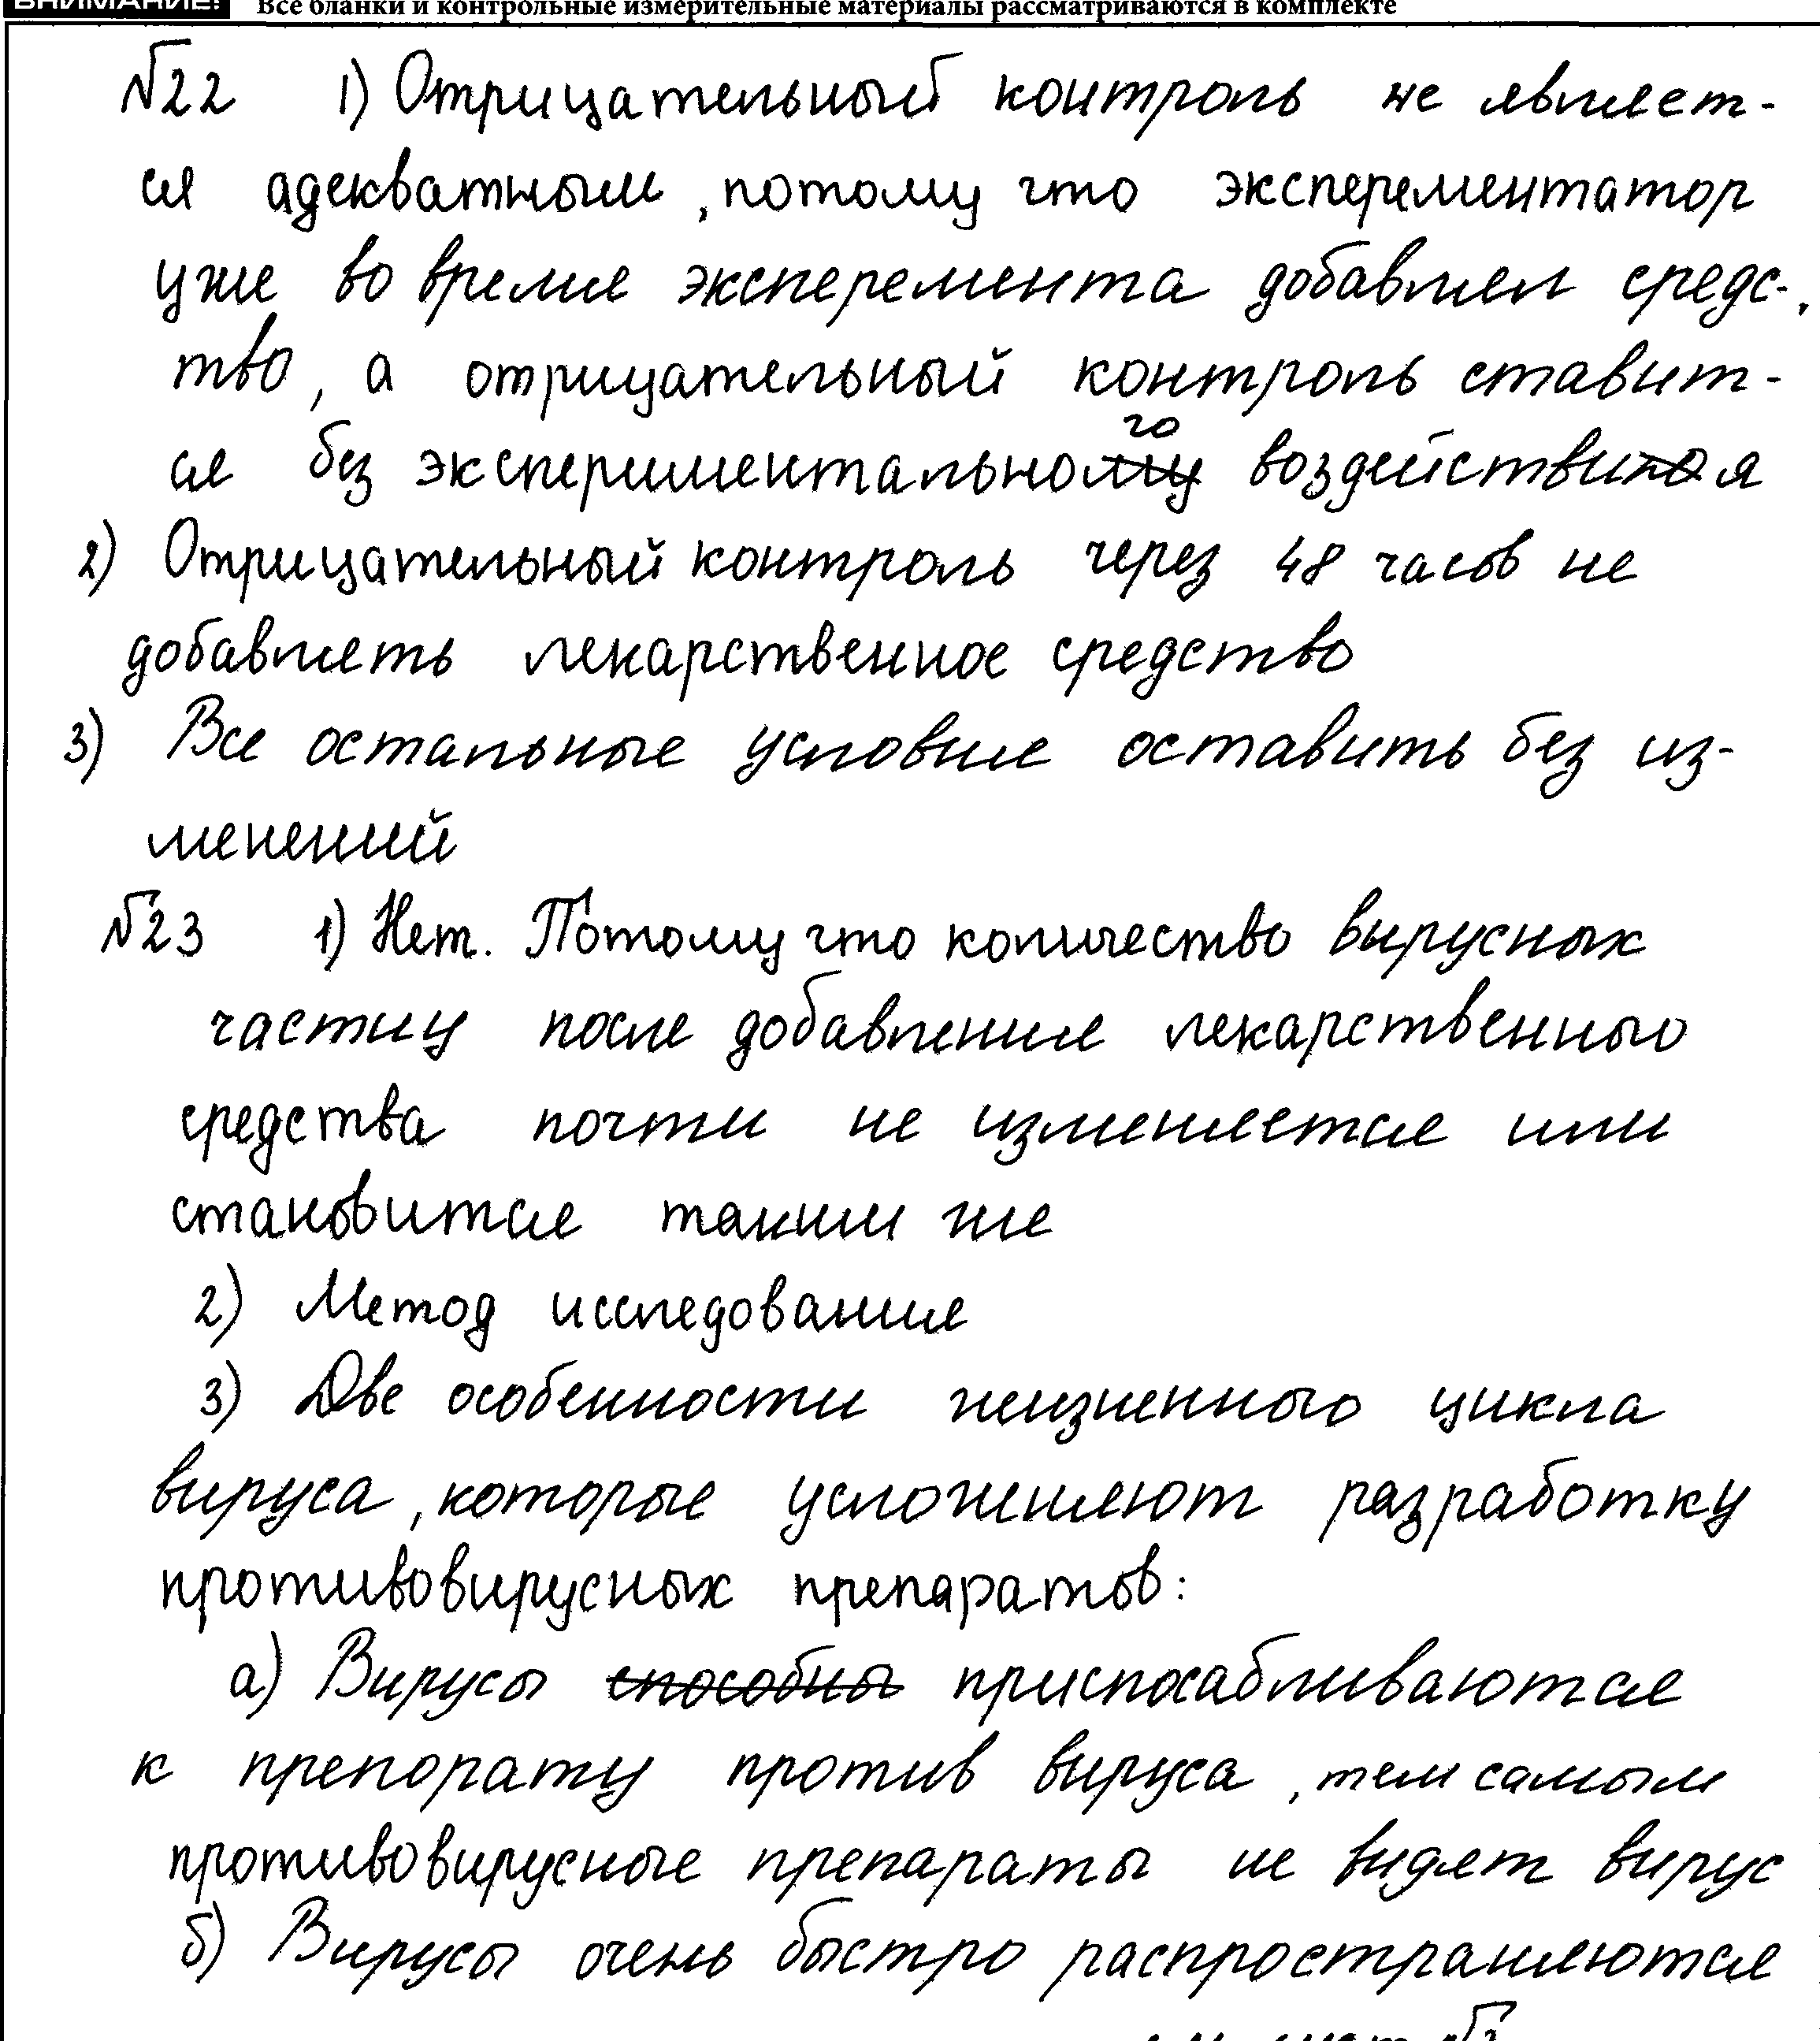 ВНИМАНИЕ! Все бланки и контрольные измерительные материалы рассматриваются в комплекте
№22 1) Отрицательный контроль не являет-
ся адекватным, потому что эксперементатор
уже во время эксперемента добавлял средс-
тво, а отрицательный контроль ставит-
ся без экспериментального воздействия
2) Отрицательный контроль через 48 часов не
добавлять лекарственное средство
3) Все остальные условия оставить без из-
менений
№23 1) Нет. Потому что количество вирусных
частиц после добавления лекарственного
средства почти не изменяется или
становится таким же
2) Метод исследования
3) Две особенности жизненного цикла
вируса, которые усложняют разработку
противовирусных препаратов:
а) Вирусы способны приспосабливаются
к препорату против вируса, тем самым
противовирусные препараты не видят вирус
б) Вирусы очень быстро распространяются